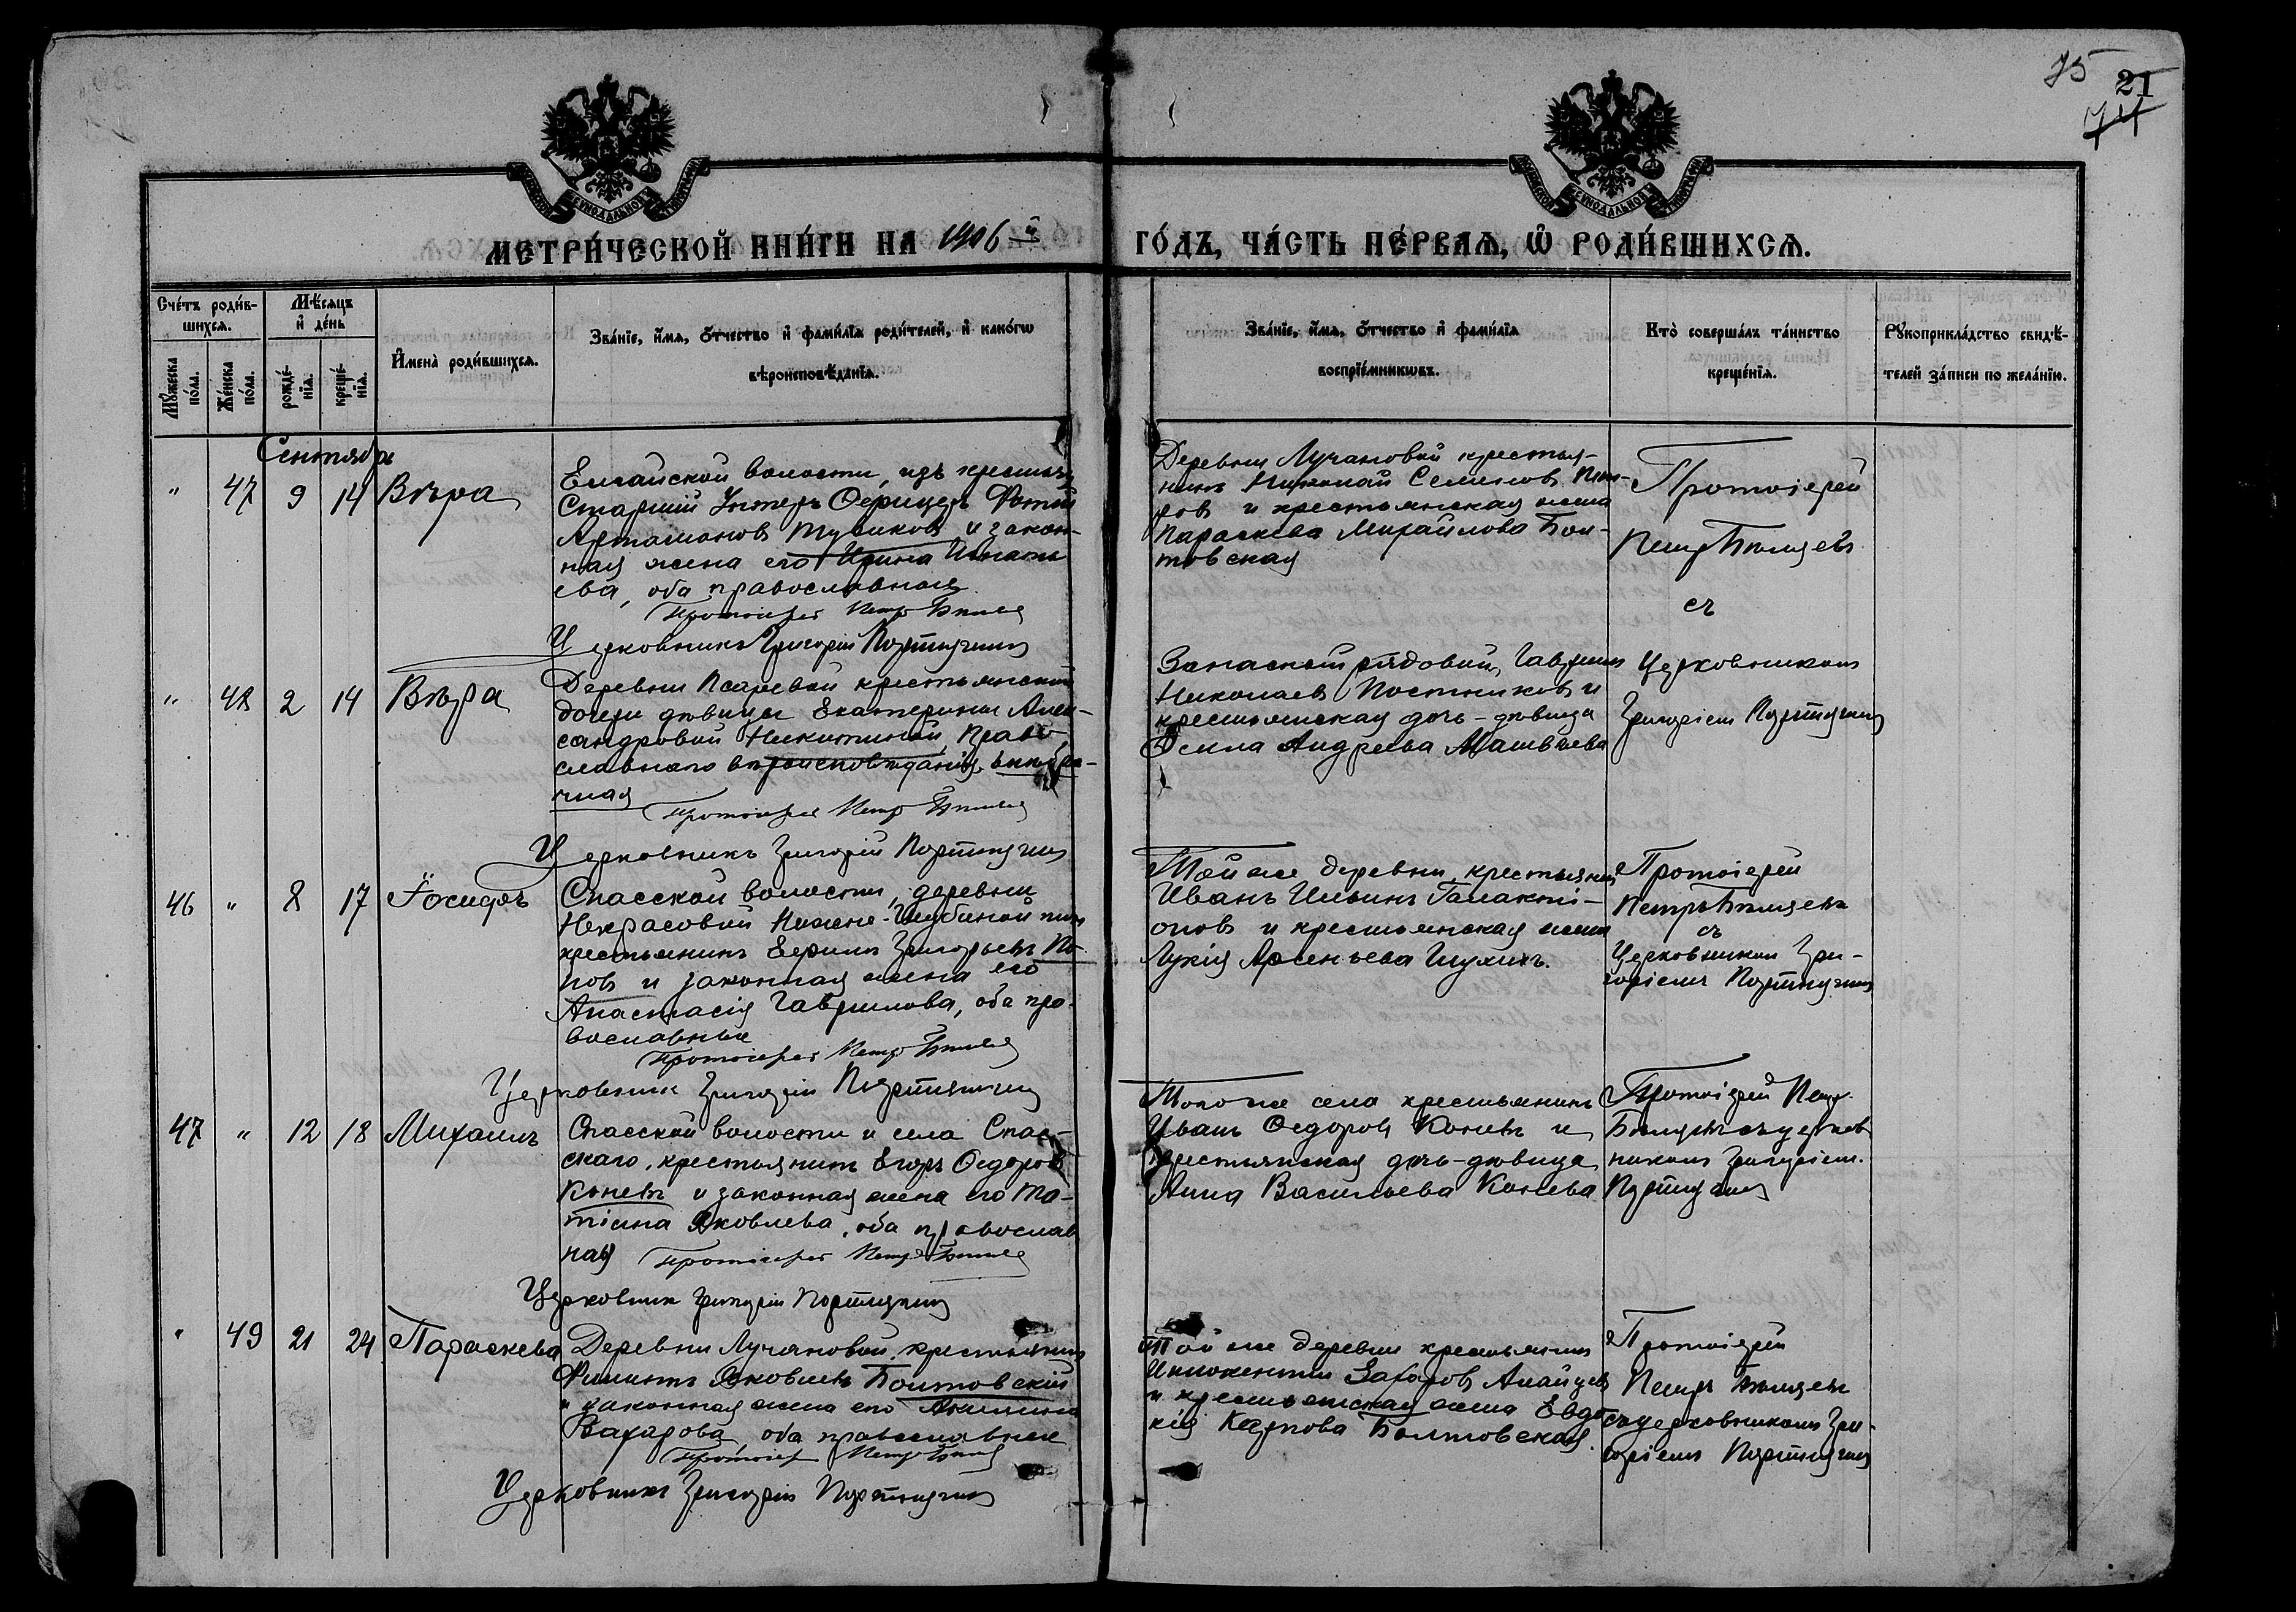 75
21
74
МЕТРИ́ЧЕСКОЙ КНИ́ГИ НА 1906 й
ГО́ДЪ, ЧА́СТЬ ПЕ́РВАЯ, Ѡ РОДИ́ВШИХСЯ.
Сче́тъ роди́в-
шихся.
Мѣ́сяцъ
и҆ де́нь
Мꙋ́жеска по́ла.
Же́нска по́ла.
рожде́-
нїѧ.
креще́-
нїѧ.
И҆мена̀ роди́вшихся.
Зва́нїе, и҆́мѧ, ѻ҆́тчество и҆ фами́лїѧ роди́телей, и҆ како́гѡ
вѣроисповѣ́данїѧ.
Зва́нїе, и҆́мѧ, ѻ҆́тчество и҆ фами́лїѧ
воспрїе́мникѡвъ.
Кто̀ соверша́лъ та́инство
креще́нїѧ.
Рꙋкоприкла́дство свидѣ́-
телей за́писи по жела́нїю.
Сентябрь
" 47 9 14 Вѣра
волости, изъ крестьян
Старшій Унтеръ Офицеръ Фотій
Артамоновъ и закон-
ная жена его Ирина Игнать-
ева, оба православные
Протоіерей Петръ
Церковникъ Григорій
Деревни Лучановой крестья-
нинъ Николай Семеновъ
и крестьянская жена
Параскева Михайлова Бол-
товская
Протоіерей
Петръ
съ
Церковникомъ
Григоріемъ
" 48 2 14 Вѣра
Деревни Псаревой крестьянской
дочери дѣвицы Екатерины Алек-
сандровой Никитиной, Право-
славнаго вѣроисповѣданія, внѣбра-
чная
Протоіерей Петръ
Церковникъ Григорій
Запасный рядовой, Гавріилъ
Николаевъ Постниковъ и
крестьянская дочь-дѣвица
Андреева Матвѣева
46 " 8 17 Іосифъ
Спасской волости, деревни
Некрасовой
крестьянинъ Ефимъ Григорьевъ По-
повъ и законная жена его
Анастасія Гаврилова, оба пра-
вославные
Протоіерей Петръ
Церковникъ Григорій
Той же деревни, крестьянинъ
Иванъ Ильинъ Галакті-
оновъ и крестьянская жена
Лукія Арсеньева
Протоіерей
Петръ
съ
Церковникомъ Гри-
горіемъ
47 " 12 18 Михаилъ
Спасской волости и села Спас-
скаго, крестьянинъ Егоръ Ѳедоровъ
Коневъ и законная жена его Та-
тіана Яковлева, оба православ
ная
Протоіерей Петръ
Церковник Григорій
Того же села крестьянинъ
Иванъ Ѳедоровъ Коневъ и
крестьянская дочь-дѣвица
Анна Васильева Конева
Протоіерей Петръ
съ церков
никомъ Григоріемъ
" 49 21 24 Параскева
Деревни Лучановой, крестьянинъ
Филиппъ Яковлевъ Болтовскій
и законная жена его Акилина
Захарова, оба православные
Протоіерей Петръ
Церковникъ Григорій
Той же деревни крестьянинъ
Иннокентій Захаровъ
и крестьянская жена Евдо-
кія Карпова Болтовская.
Протоіерей
Петръ
съ церковникомъ Гри-
горіемъ